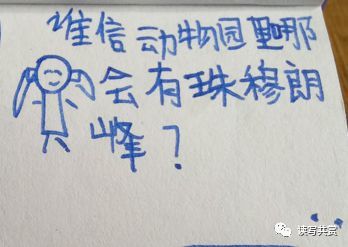 谁信动物园里哪
会有珠穆朗
峰？
读写共赏